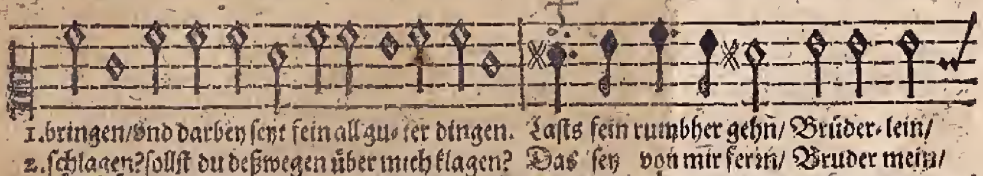 1. bringen/ vnd darbey seyt fein all gu⸗ ter dingen. Lasts fein rumbher gehn/ Brüder⸗lein/
2. schlagen? sollst du deßwegen über mich klagen? Das sey von mir ferrn/ Bruder mein/